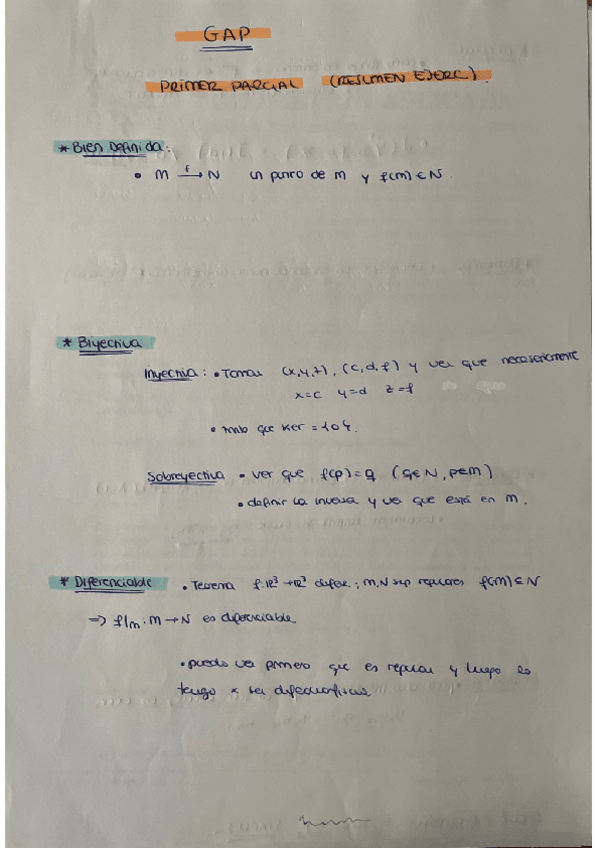 GAP
PRIMER PARCIAL (RESUMEN EJERC).
* Bien Definida:
• M →f N un punto de M y f(m) ∈ N.
* Biyectiva
Inyectiva: • Tomar (x,y,z), (c,d,f) y ver que necesariamente
x=c y=d z=f
• que Ker = {0}.
Sobreyectiva • ver que f(p)=q (q∈N, p∈M)
• definir la inversa y ver que está en M.
* Diferenciable • Teorema f: ℝ³→ℝ³ difer.; M,N sup regulares f(M)⊂N
⇒ f|m: M→N es diferenciable
• puedo ver primero que es regular y luego lo
tengo x ser difeomorfismo